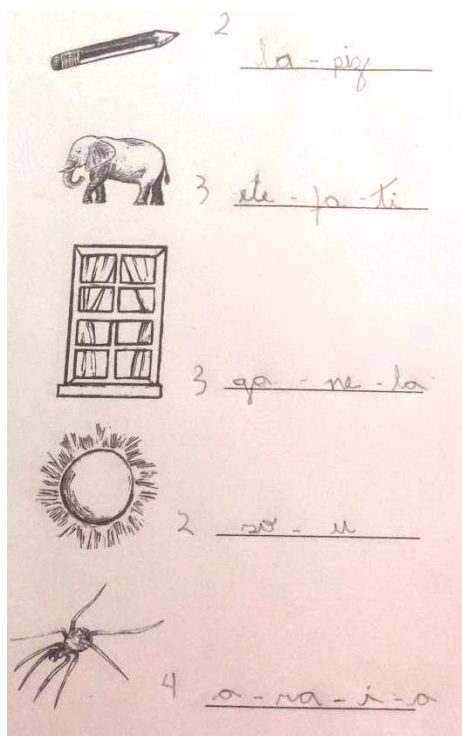 2 la - piz
3 ete - fa - ti
3 ga - ne - la
2 so - u
4 a - ra - i - a